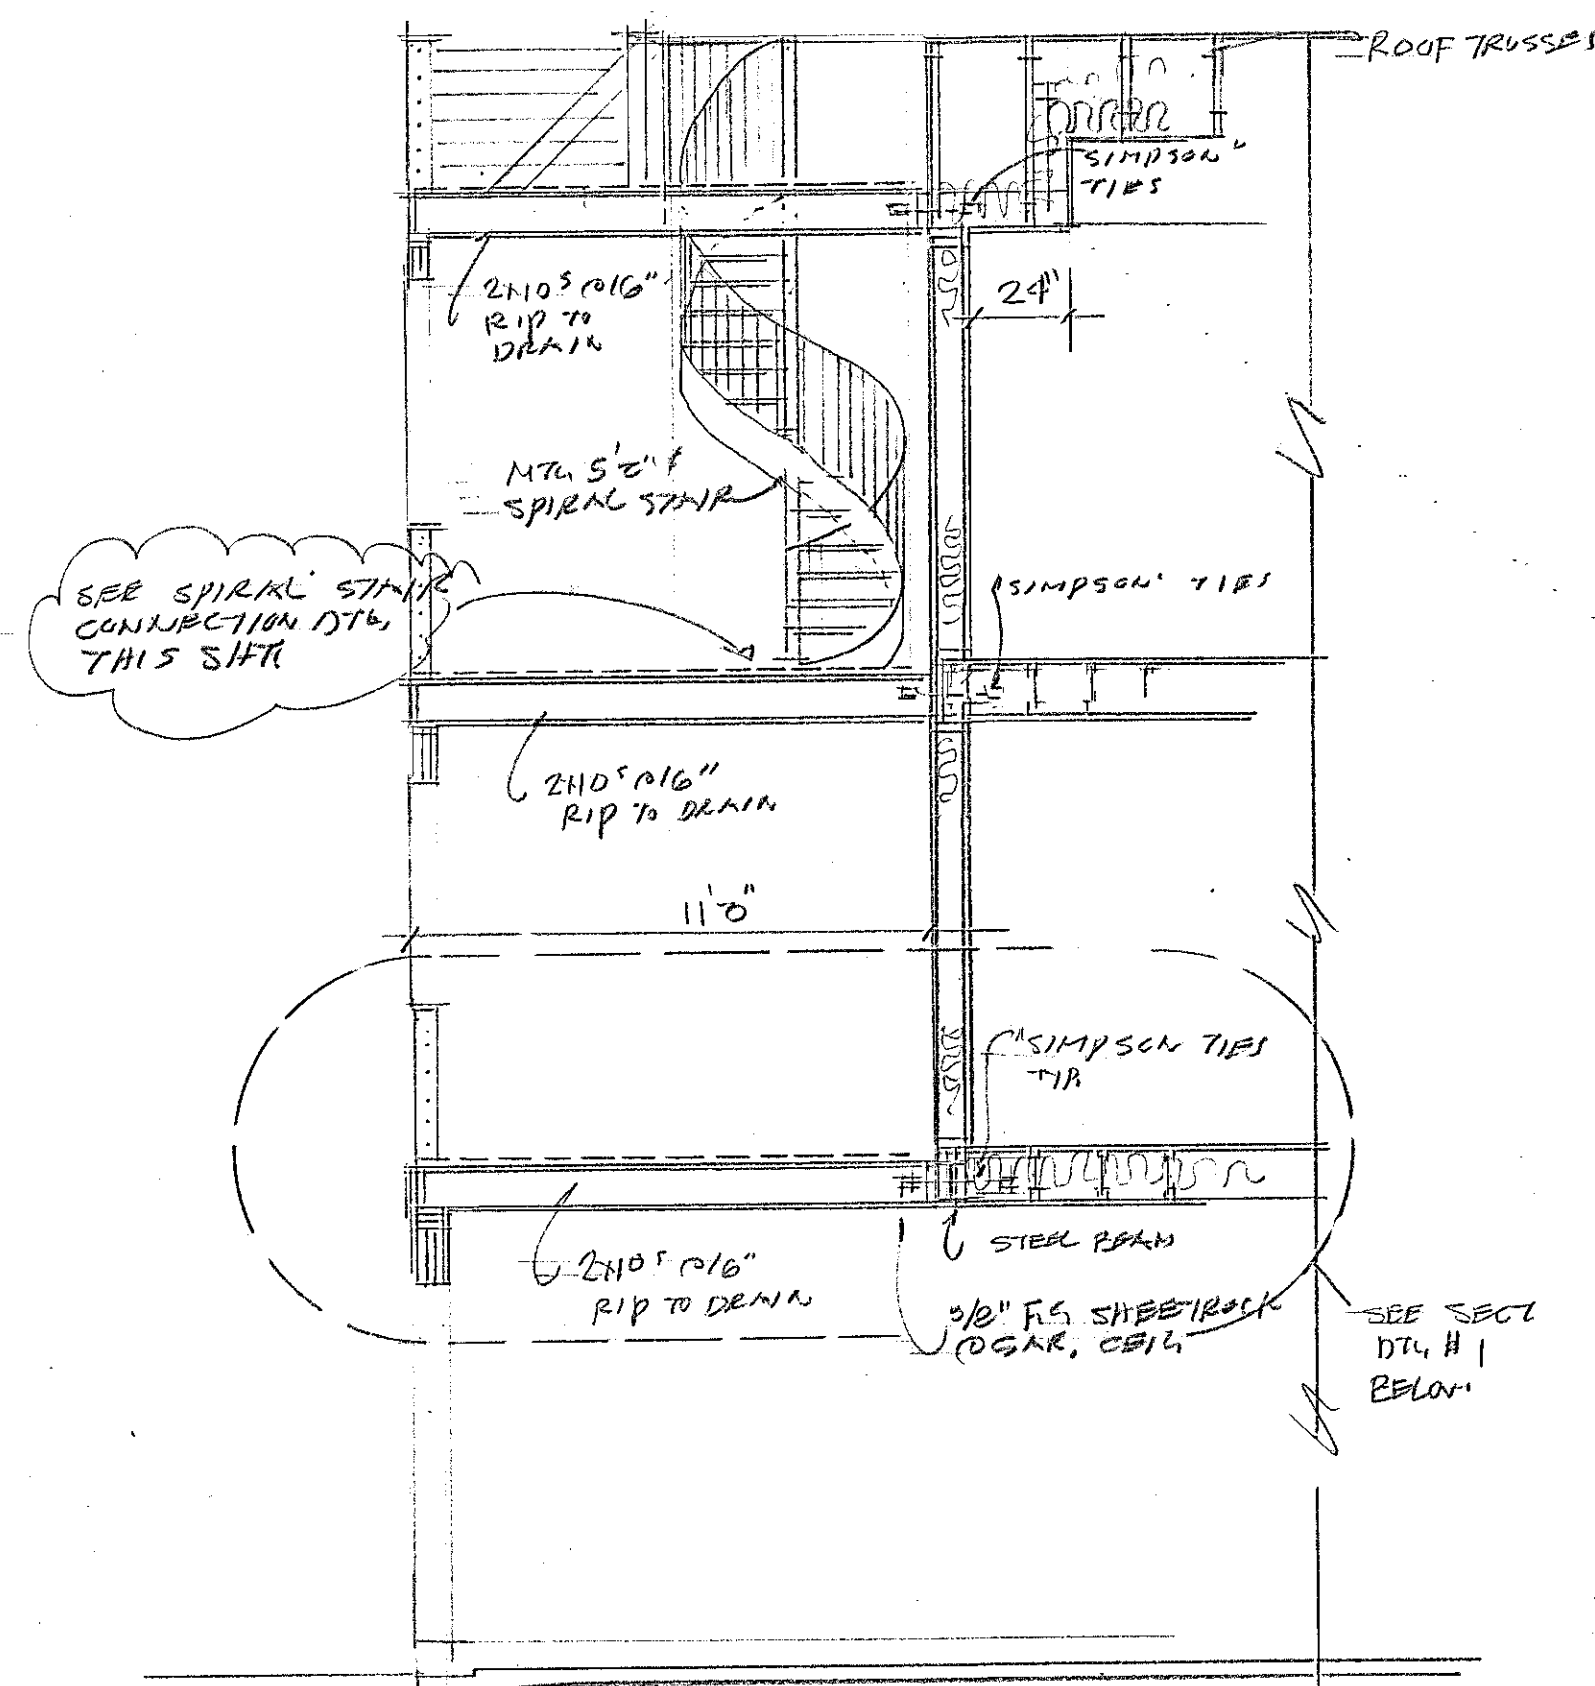 ROOF TRUSSES
"SIMPSON"
TIES
2X10s @16"
RIP TO
DRAIN
24"
MTL 5'0" ϕ
SPIRAL STAIR
SEE SPIRAL STAIR
CONNECTION DTL,
THIS SHT
"SIMPSON" TIES
2X10s @16"
RIP TO DRAIN
11'0"
"SIMPSON TIES
TYP.
STEEL BEAM
2X10s @16"
RIP TO DRAIN
5/8" SHEETROCK
@GAR. CEIL
SEE SECT
DTL, # 1
BELOW